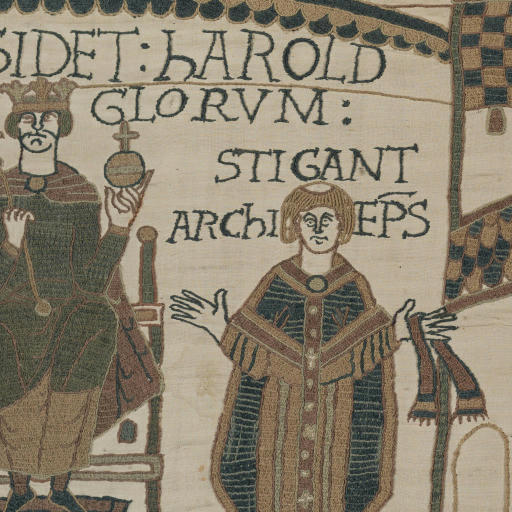 SIDET: hAROLD
GLORVM:
STIGANT
ARChI EP̄S